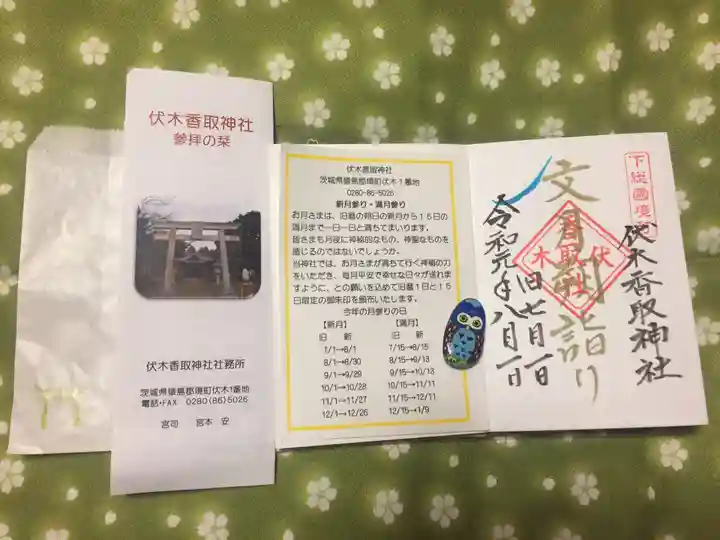 伏木香取神社
参拝の栞
伏木香取神社社務所
茨城県猿島郡境町伏木1番地
電話・FAX 0280(86)5026
宮司 宮本 安
伏木香取神社
茨城県猿島郡境町伏木1番地
0280-86-5026
新月参り・満月参り
お月さまは、旧暦の朔日の新月から15日の
満月まで一日一日と満ちてまいります。
皆さまも月夜に神秘的なもの、神聖なものを
感じるのではないでしょうか。
当神社では、お月さまが満ちて行く神秘の力
をいただき、毎月平安で幸せな日々が送れま
すように、との願いを込めて旧暦1日と15
日限定の御朱印を頒布いたします。
今年の月参りの日
【新月】 【満月】
旧 新 旧 新
7/1→8/1 7/15→8/15
8/1→8/30 8/15→9/13
9/1→9/29 9/15→10/13
10/1→10/28 10/15→11/11
11/1→11/27 11/15→12/11
12/1→12/26 12/15→1/9
下総国境
伏木香取神社
文月朔日詣り
伏木
香取
神社
旧七月一日
令和元年八月一日